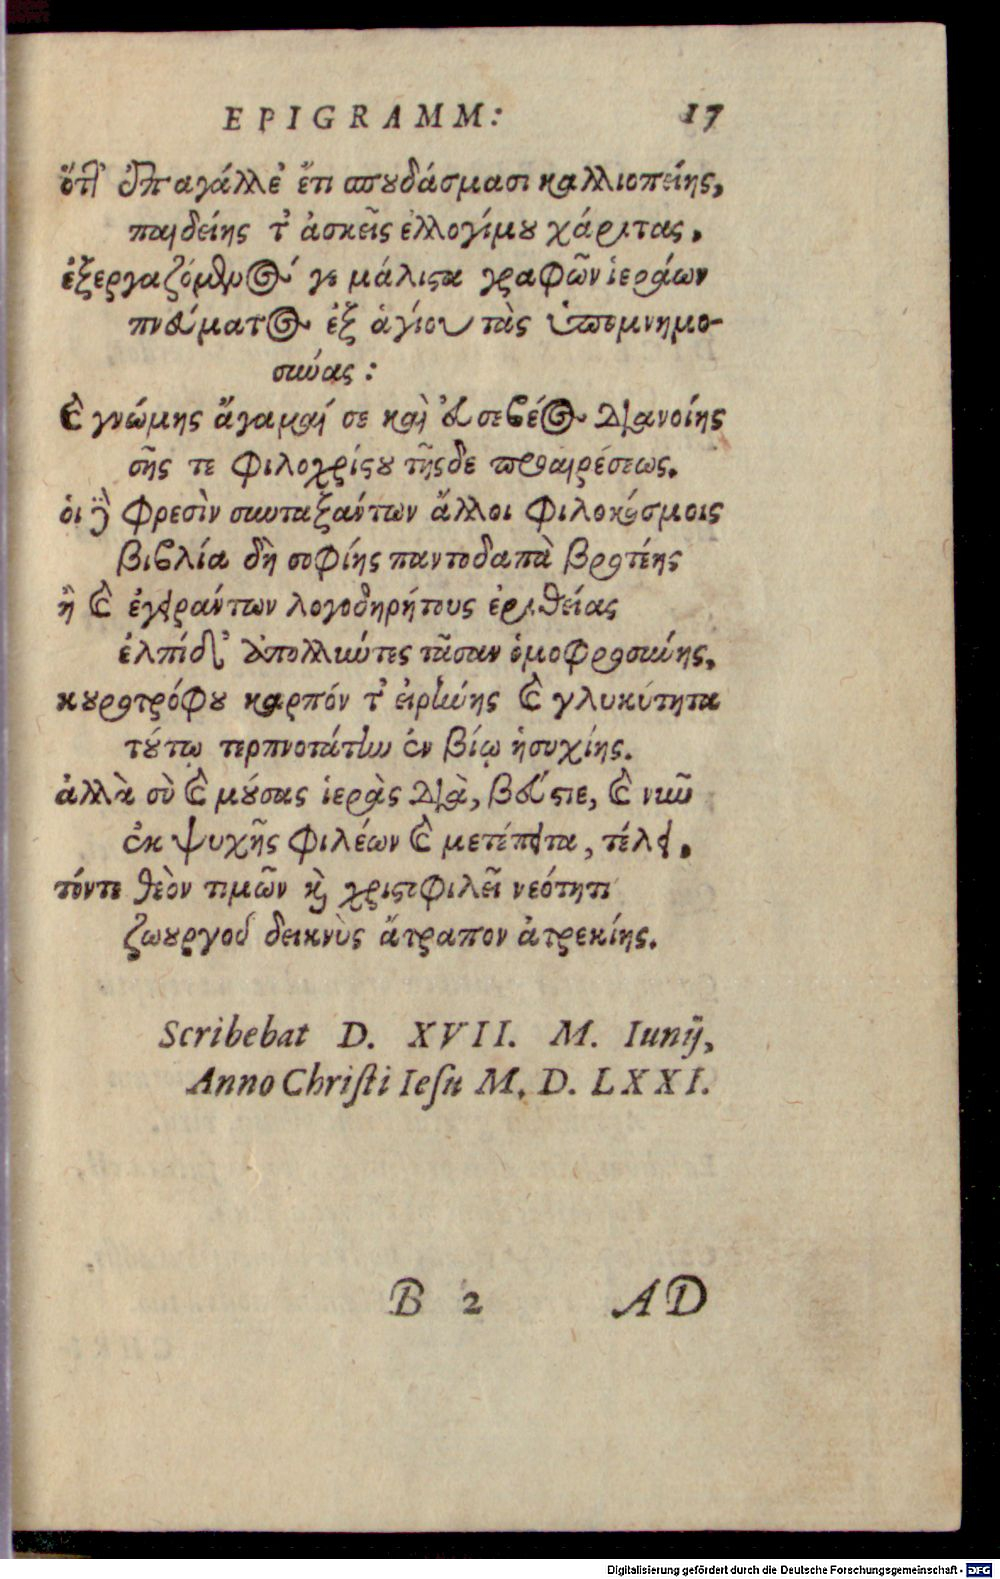 EPIGRAMM: 17
ὅτ' ἐπαγάλλε' ἔτι σπουδάσμασι καλλιοπείης,
παιδείης τ' ἀσκεῖς ἐλλογίμου χάριτας.
ἐξεργαζόμενός γε μάλιστα γραφῶν ἱεράων
πνεύματος ἐξ ἁγίου τὰς ὑπομνημο-
σύνας:
καὶ γνώμης ἄγαμαί σε καὶ εὐσεβέος διανοίης
σῆς τε φιλοχρίστου τῆσδε προαιρέσεως.
οἱ γὰρ φρεσὶν συνταξάντων ἄλλοι φιλοκόσμοις
βιβλία δὴ σοφίης παντοδαπὰ βροτέης
ἢ καὶ ἐγειράντων λογοδηρήτους ἐριθείας
ἐλπίδ' ἀπολλύντες πᾶσαν ὁμοφροσύνης,
κουροτρόφου καρπόν τ' εἰρήνης καὶ γλυκύτητα
τούτῳ τερπνοτάτην ἐν βίῳ ἡσυχίης.
ἀλλὰ σὺ καὶ μούσας ἱερὰς διὰ, βεύστιε, καὶ νῦν
ἐκ ψυχῆς φιλέων καὶ μετέπειτα, τέλει.
τόντε θεὸν τιμῶν καὶ χριστοφιλεῖ νεότητι
ζωουργοῦ δεικνὺς ἄτραπον ἀτρεκίης.
Scribebat D. XVII. M. Iunij,
Anno Christi Iesu M. D. LXXI.
B 2 AD
Digitalisierung gefördert durch die Deutsche Forschungsgemeinschaft - DFG